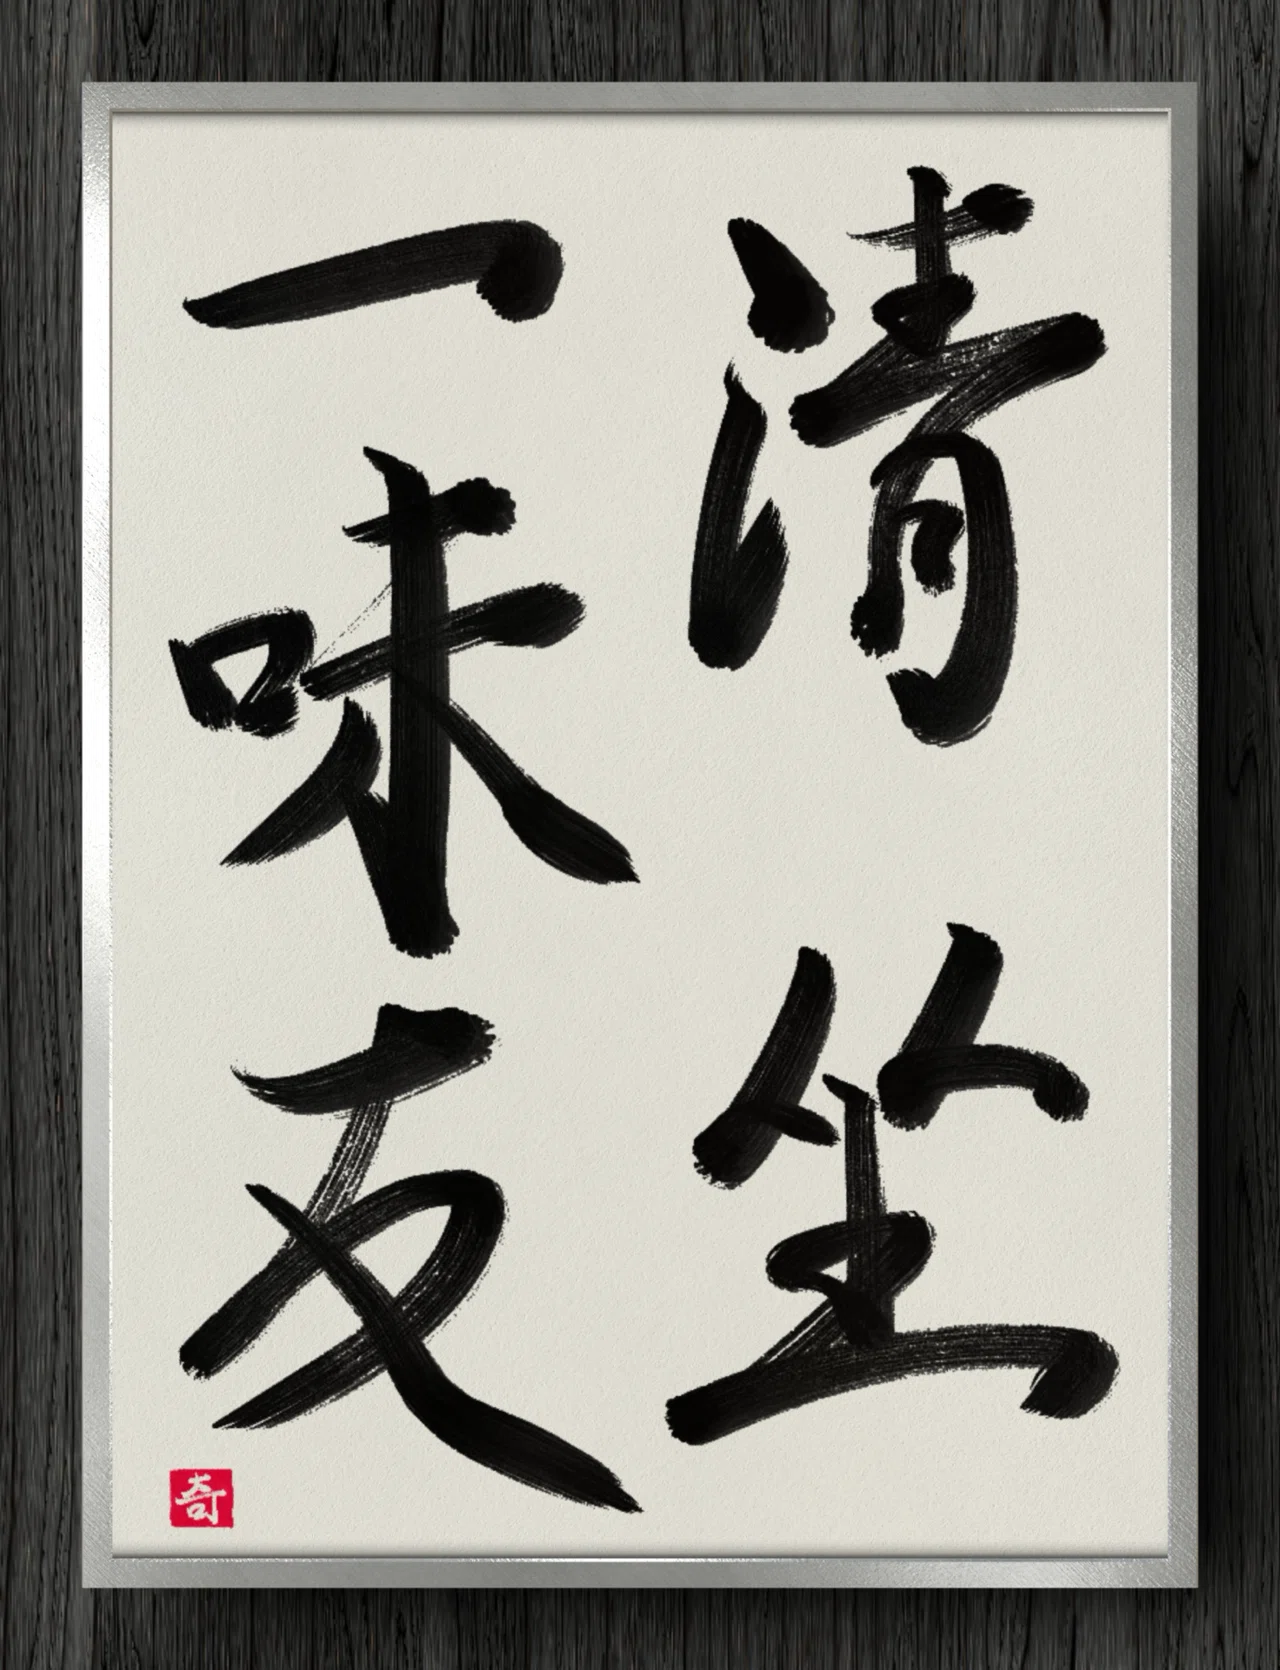 清坐
一味友
奇